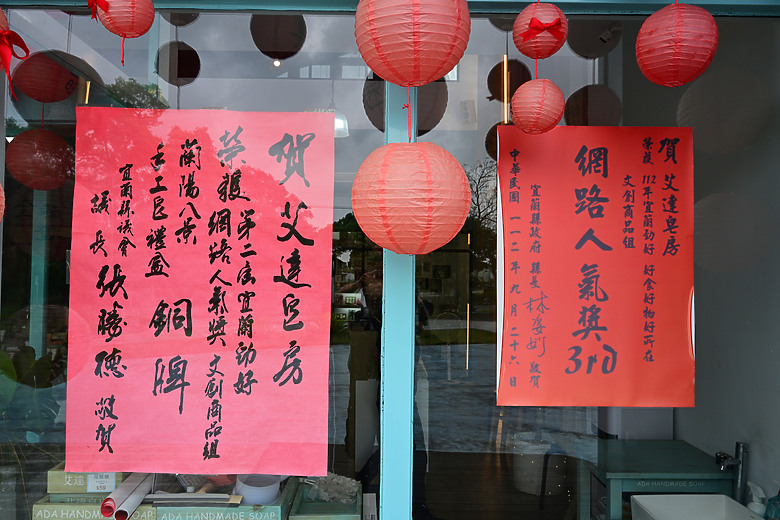 賀 艾達皂房
榮獲 第二屆宜蘭勁好
網路人氣獎 文創商品組
蘭陽八景
手工皂禮盒 銅牌
宜蘭縣議會
議長 張勝德 敬賀
賀 艾達皂房
榮獲 112年宜蘭勁好 好食好物好所在
文創商品組
網路人氣獎
3rd
宜蘭縣政府 縣長 林姿妙 敬賀
中華民國一一二年九月二十六日
艾達
$59
ADA HANDMADE SOAP
ADA HANDMADE SOAP
ADA HANDMADE SOAP